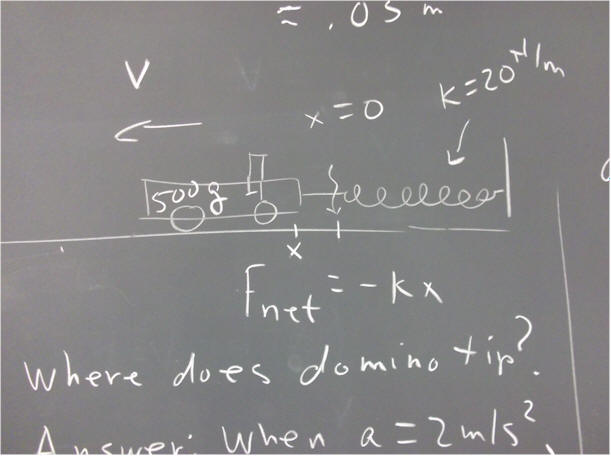 = .05 m
V
x = 0
k = 20 N/m
500g
x
Fnet = -kx
Where does domino tip?
Answer: When a = 2 m/s²